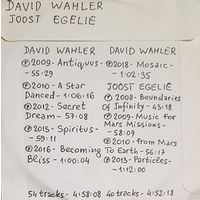 DAVID WAHLER
JOOST EGELIE
DAVID WAHLER
℗2009-Antiquus-
-55:29
℗2010-A Star
Danced-1:06:16
℗2012-Secret
Dream-57:08
℗2015-Spiritus-
-59:11
℗2016-Becoming
Bliss-1:00:04
54 tracks-4:58:08
DAVID WAHLER
℗2018-Mosaic-
-1:02:35
JOOST EGELIE
℗2008-Boundaries
Of Infinity-43:18
℗2009-Music for
Mars Missions-
-58:09
℗2010-from Mars
To Earth-56:17
℗2013-Particles-
-1:12:00
40 tracks-4:52:18